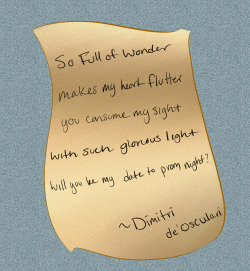 So Full of wonder
makes my heart flutter
you consume my sight
with such glorious light
Will you be my date to prom night?
~Dimitri
de'Osculari